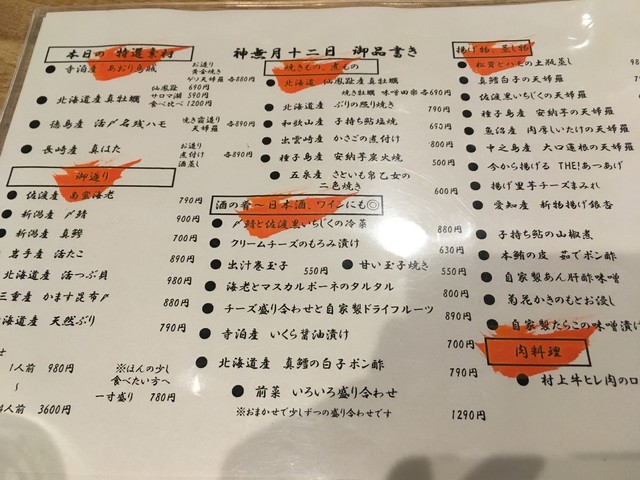 神無月十二日 御品書き
本日の 特選素材
寺泊産 あおり烏賊
お造り
黄金焼き
ゲソ天婦羅 各880円
北海道産 真牡蠣
仙鳳趾 690円
サロマ湖 590円
食べ比べ 1200円
徳島産 活〆名残ハモ
焼き霜造り
天婦羅 各890円
長崎産 真はた
お造り
煮付け 各890円
酒蒸し
御造り
佐渡産 南蛮海老 790円
新潟産 〆鯖 900円
新潟産 真鯵 700円
岩手産 活たこ 890円
北海道産 活つぶ貝 980円
三重産 かます昆布〆 880円
北海道産 天然ぶり 790円
1人前 980円
〜
4人前 3600円
※ほんの少し
食べたい方へ
一寸盛り 780円
焼きもの、煮もの
北海道 仙鳳趾産真牡蠣
焼き牡蠣 味噌田楽 各690円
北海道産 ぶりの照り焼き 790円
和歌山産 子持ち鮎塩焼 690円
出雲崎産 かさごの煮付け 880円
種子島産 安納芋炭火焼 500円
五泉産 さといも帛乙女の
二色焼き 600円
酒の肴〜日本酒、ワインにも◎
〆鯖と佐渡黒いちじくの冷菜 880円
クリームチーズのもろみ漬け 630円
出汁巻玉子 550円
甘い玉子焼き 550円
海老とマスカルポーネのタルタル 880円
チーズ盛り合わせと自家製ドライフルーツ 890円
寺泊産 いくら醤油漬け 700円
北海道産 真鱈の白子ポン酢 790円
前菜 いろいろ盛り合わせ 1290円
※おまかせで少しずつの盛り合わせです
揚げ物、蒸し物
松茸とハモの土瓶蒸し
真鱈白子の天婦羅
佐渡黒いちじくの天婦羅
種子島産 安納芋の天婦羅
魚沼産 肉厚しいたけの天婦羅
中之島産 大口蓮根の天婦羅
今から揚げる THE!あつあげ
揚げ里芋チーズまみれ
愛知産 新物揚げ銀杏
子持ち鮎の山椒煮
本鮪の皮 茹でポン酢
自家製あん肝酢味噌
菊花かきのもとお浸し
自家製たらこの味噌漬
肉料理
村上牛ヒレ肉のロ